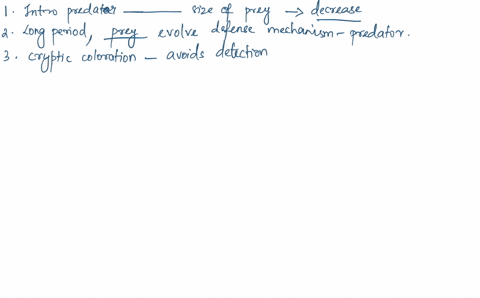 1. Intro predator —— size of prey → decrease
2. Long period, prey evolve defense mechanism - predator.
3. Cryptic coloration - avoids detection